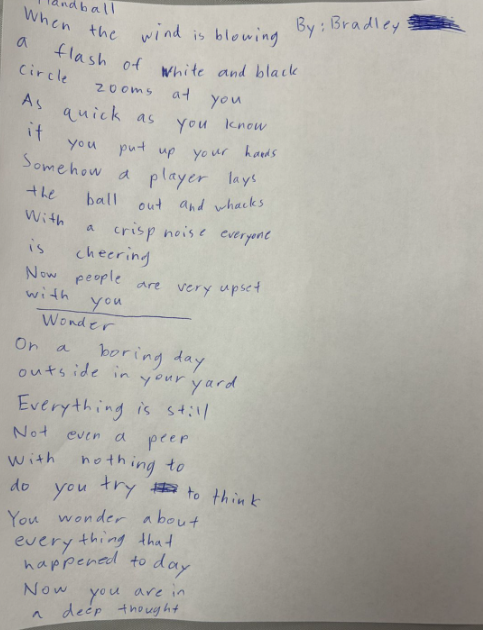 Handball
By: Bradley
When the wind is blowing
a flash of white and black
circle zooms at you
As quick as you know
it you put up your hands
Somehow a player lays
the ball out and whacks
With a crisp noise everyone
is cheering
Now people are very upset
with you
Wonder
On a boring day
outside in your yard
Everything is still
Not even a peep
With nothing to
do you try to think
You wonder about
everything that
happened today
Now you are in
a deep thought